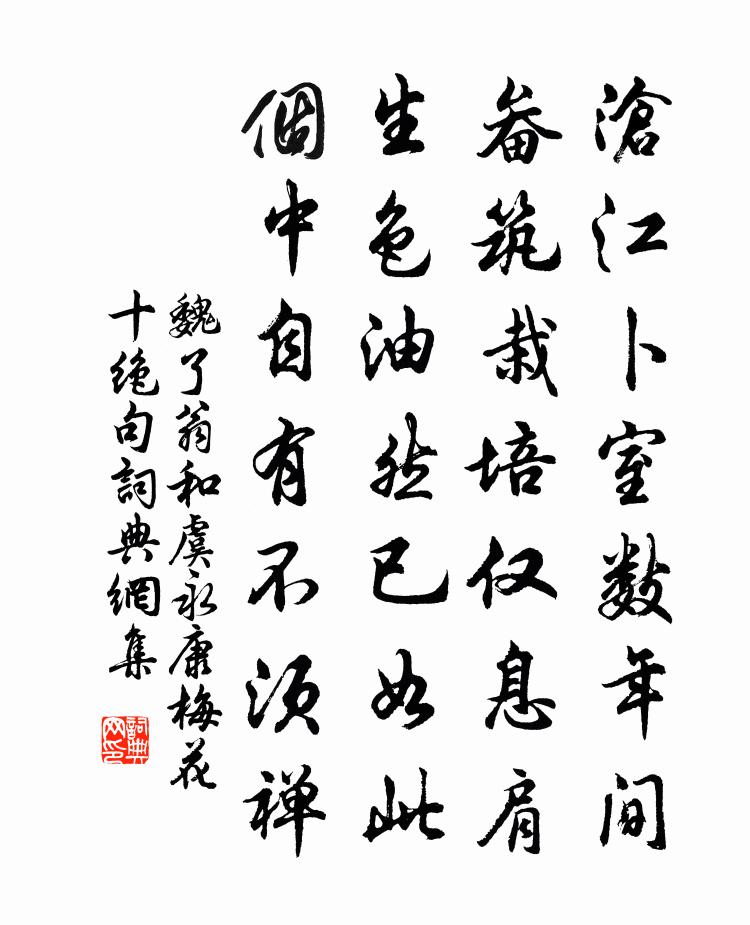 滄江卜室數年間
畚筑栽培仅息肩
生色油然已如此
個中自有不須禅
魏了翁和虞永康梅花
十絶句詞典網集
詞典网印